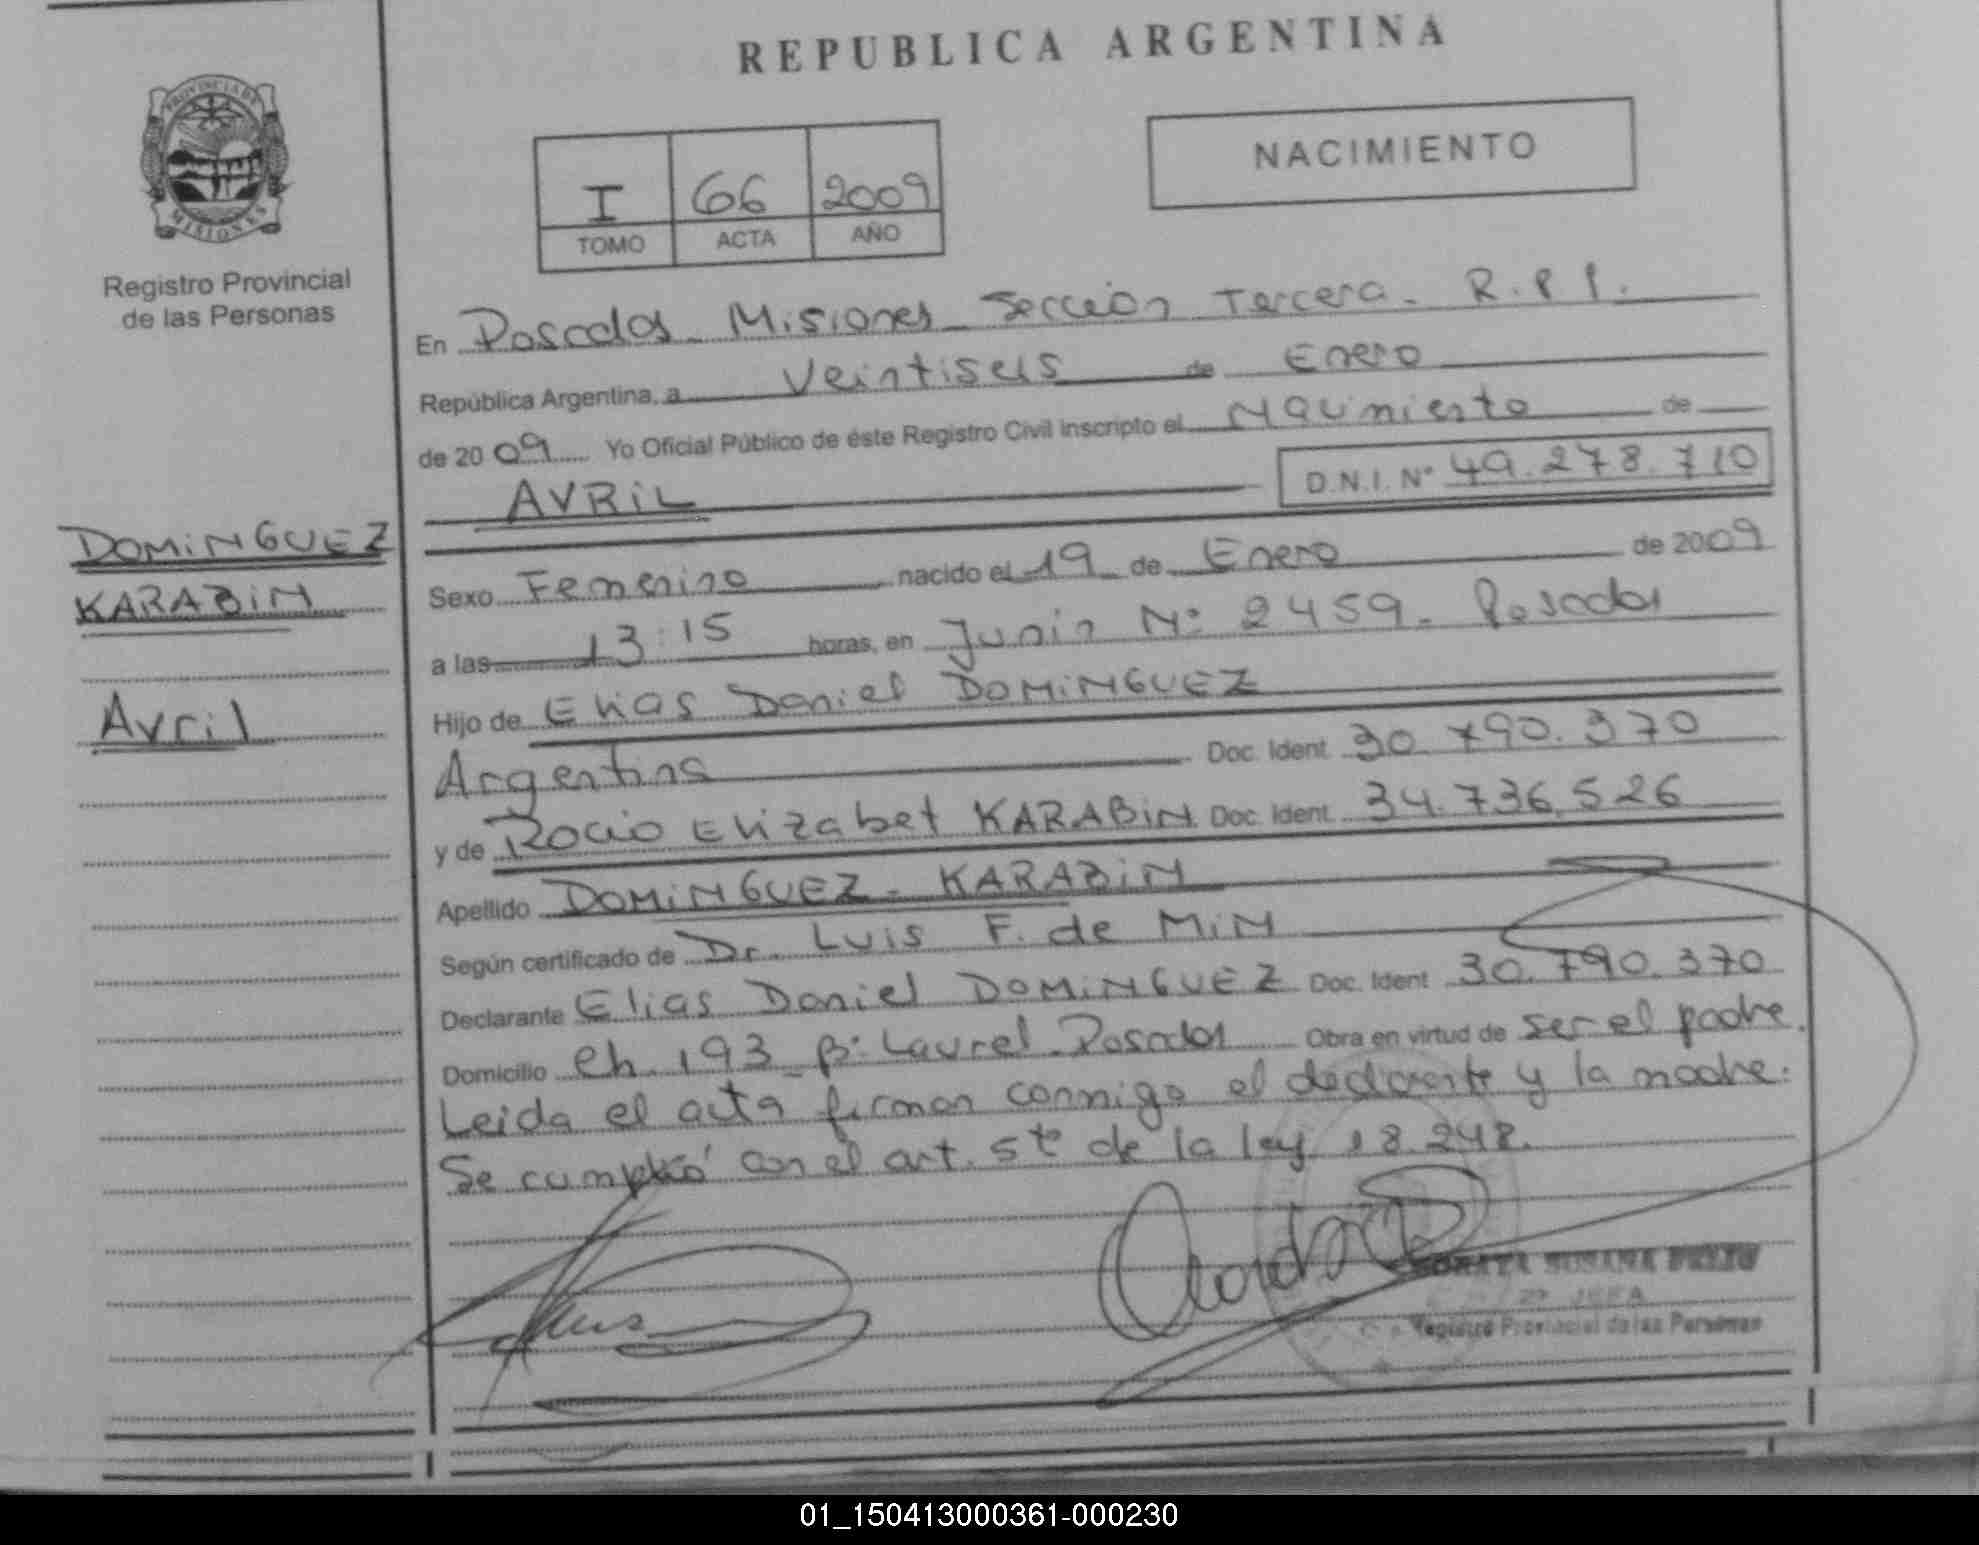 REPUBLICA ARGENTINA
PROVINCIA DE
MISIONES
Registro Provincial
de las Personas
NACIMIENTO
I 66 2009
TOMO ACTA AÑO
En Posadas - Misiones - Sección Tercera - R.P.P.
República Argentina, a Veintiseis de Enero
de 2009 Yo Oficial Público de éste Registro Civil inscripto el Nacimiento de
AVRIL
D.N.I. Nº 49.278.710
DOMINGUEZ
KARABIN
Avril
Sexo Femenino nacido el 19 de Enero de 2009
a las 13:15 horas, en Junin Nº 2459 - Posadas
Hijo de Elias Daniel DOMINGUEZ
Argentina Doc. Ident. 30.790.370
y de Rocio Elizabet KARABIN Doc. Ident. 34.736.526
Apellido DOMINGUEZ - KARABIN
Según certificado de Dr. Luis F. de MIN
Declarante Elias Daniel DOMINGUEZ Doc. Ident 30.790.370
Domicilio Ch. 193 - Bº Laurel - Posadas Obra en virtud de ser el padre.
Leida el acta firman conmigo el declarante y la madre.
Se cumplió con el art. 5to de la ley 18.248.
SUSANA
JEFA
Registro Provincial de las Personas
01_150413000361-000230